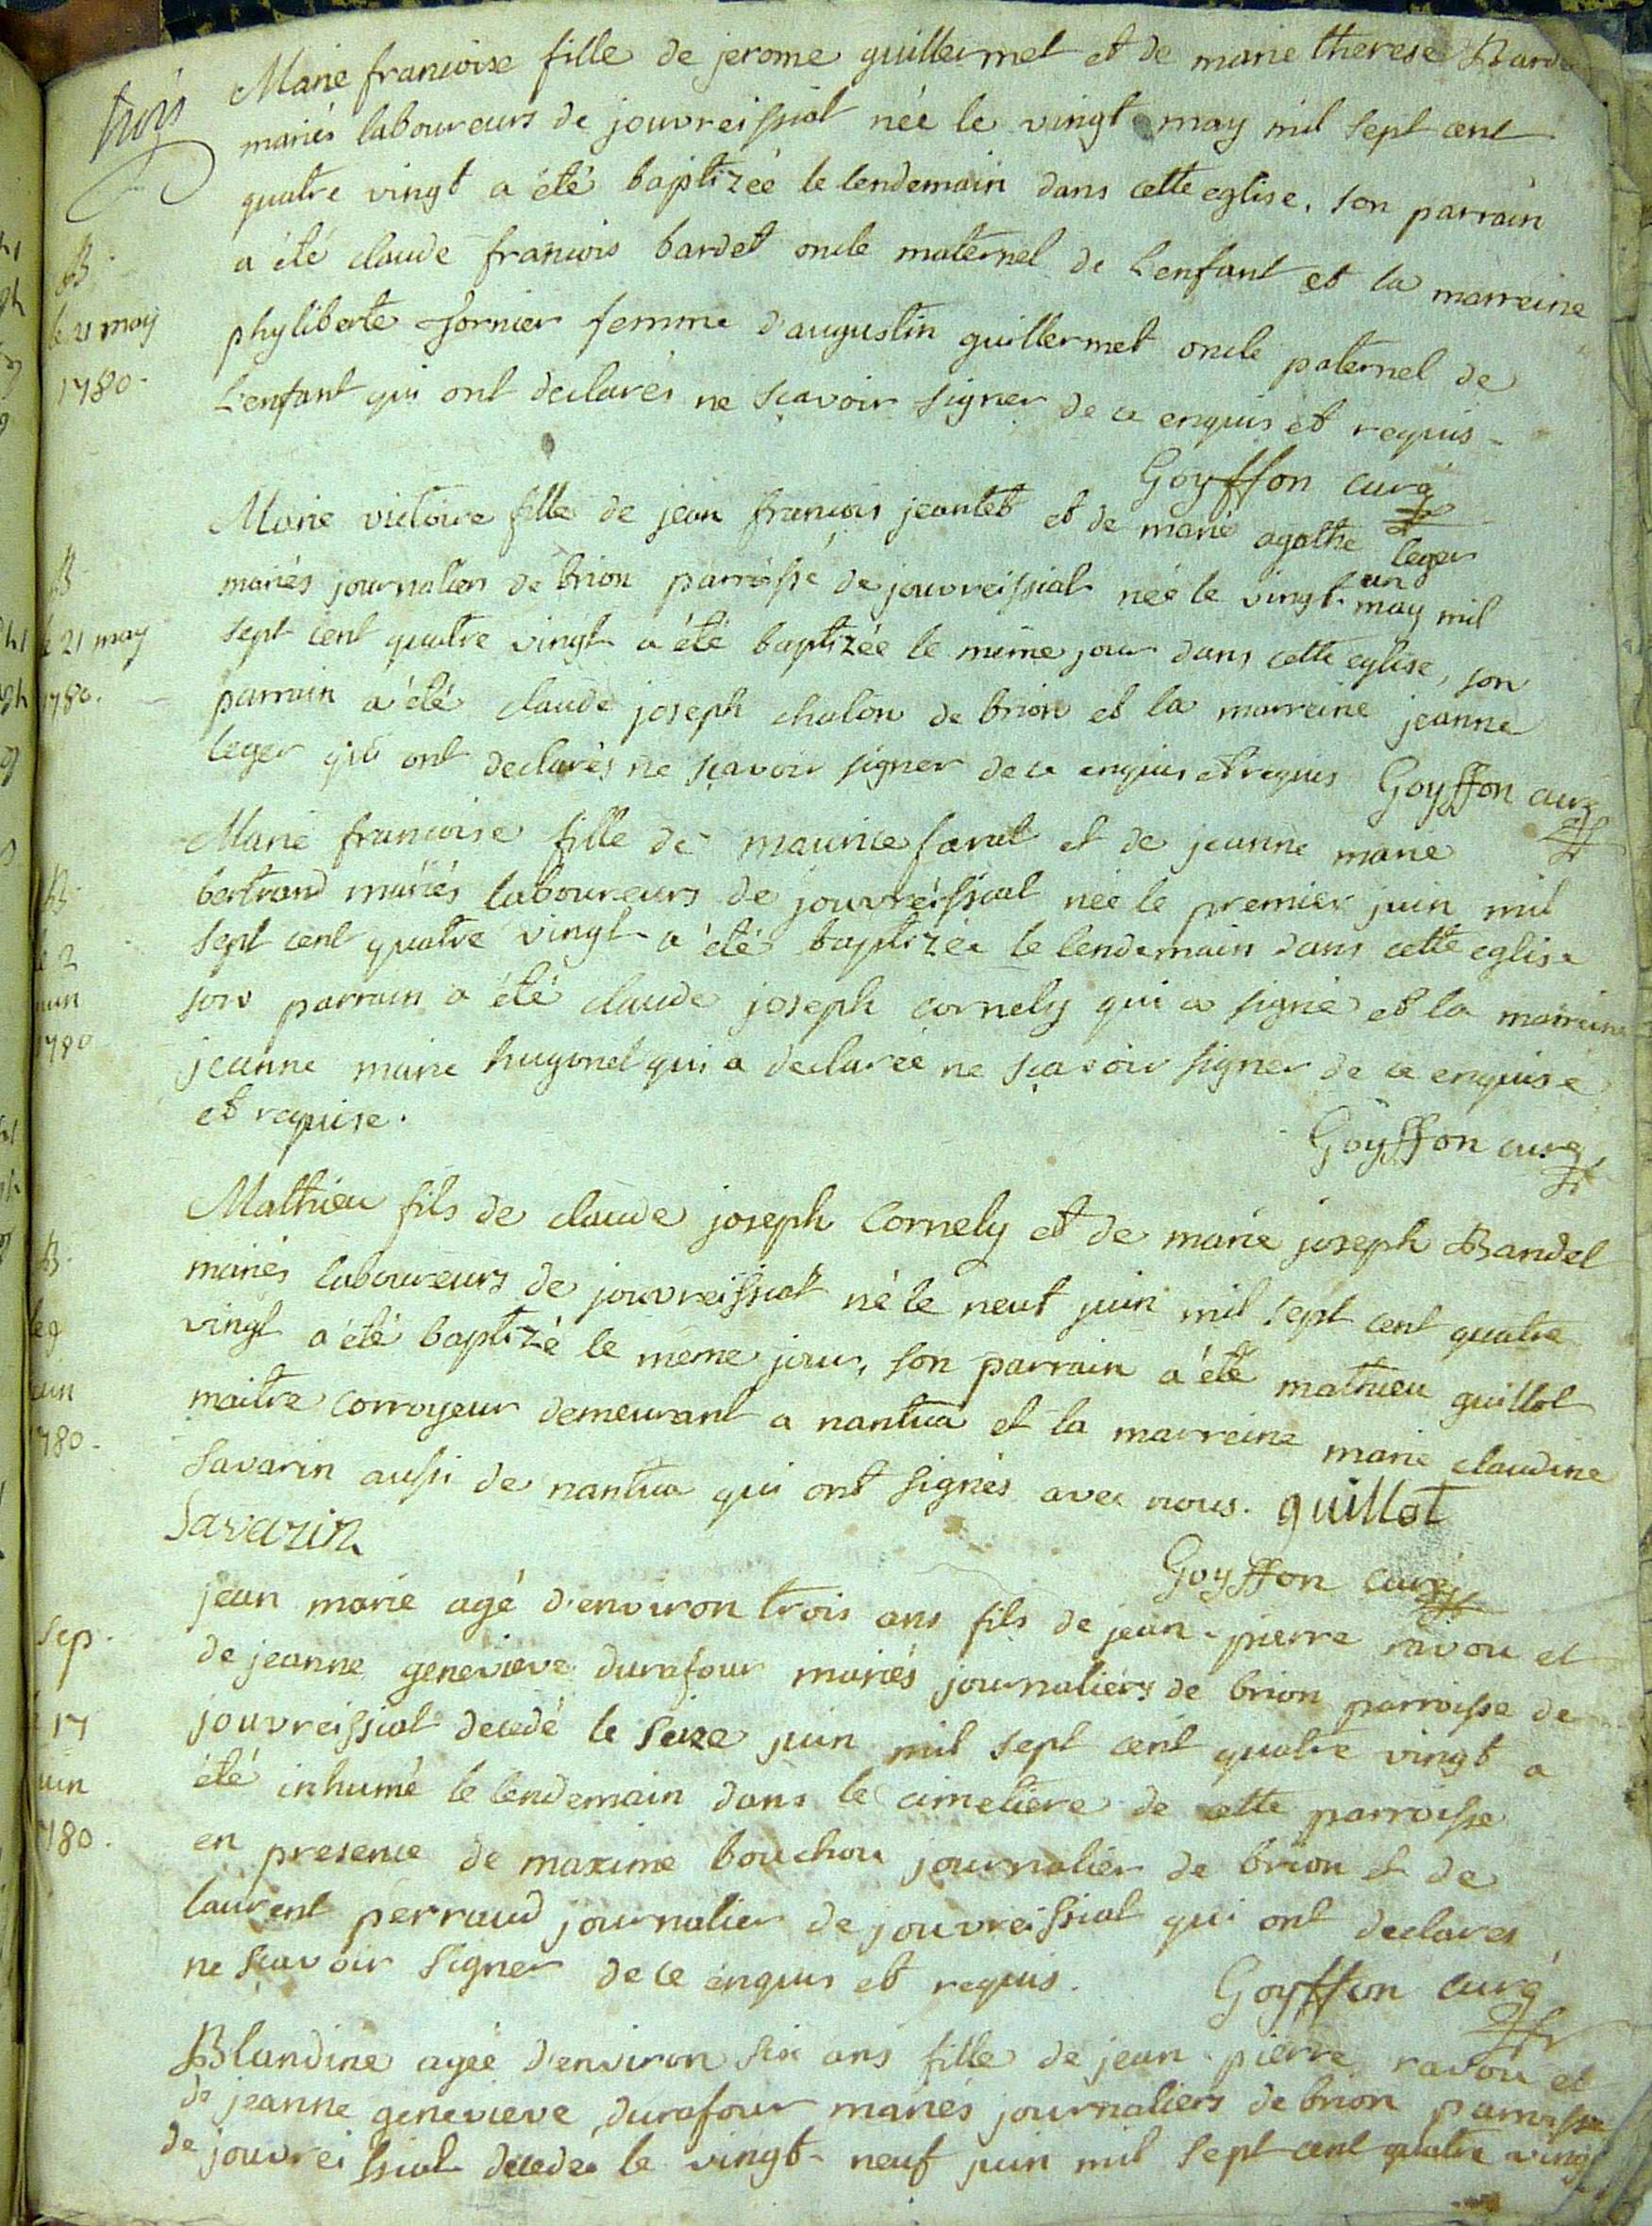 trois
Marie francoise fille de jerome guillermet et de marie therese Barde
mariés laboureurs de jouvreissiat née le vingt may mil sept cent
quatre vingt a été baptizée le lendemain dans cette eglise. son parrain
a été claude francois bardet oncle maternel de L'enfant et la marreine
phyliberte fornier femme d'augustin guillermet oncle paternel de
L'enfant qui ont declarés ne sçavoir signer de ce enquis et requis -
Goyffon curé
B.
le 21 may
1780.
Marie victoire fille de jean francois jeantet et de marie agathe leger
mariés journaliers de brion parroisse de jouvreissiat née le vingt un may mil
sept cent quatre vingt a été baptizée le même jour dans cette eglise, son
parrain a été claude joseph chalon de brion et la marreine jeanne
leger qui ont declarés ne sçavoir signer de ce enquis et requis Goyffon curé
B
le 21 may
1780.
Marie francoise fille de maurice favat et de jeanne marie
bertrand mariés laboureurs de jouvreissiat née le premier juin mil
sept cent quatre vingt a été baptizée le lendemain dans cette eglise
son parrain a été claude joseph cornely qui a signé et la marreine
jeanne marie hugonet qui a declarée ne sçavoir signer de ce enquise
et requise.
Goyffon curé
B.
le 2
juin
1780
Mathieu fils de claude joseph Cornely et de marie joseph Bandel
mariés laboureurs de jouvreissiat né le neuf juin mil sept cent quatre
vingt a été baptizé le même jour, son parrain a été mathieu guillot
maitre corroyeur demeurant a nantua et la marreine marie claudine
Savarin aussi de nantua qui ont signés avec nous. guillot
Savarin
Goyffon curé
B.
le 9
juin
1780.
jean marie agé d'environ trois ans fils de jean-pierre ravou et
de jeanne genevieve durafour mariés journaliers de brion parroisse de
jouvreissiat decedé le seize juin mil sept cent quatre vingt a
été inhumé le lendemain dans le cimetiere de cette parroisse
en presence de maxime bouchou journalier de brion et de
laurent perraud journalier de jouvreissiat qui ont declarés
ne sçavoir signer de ce enquis et requis.
Goyffon curé
Sep.
17
juin
1780.
Blandine agée d'environ six ans fille de jean-pierre ravou et
de jeanne genevieve durafour mariés journaliers de brion parroisse
de jouvreissiat decedée le vingt-neuf juin mil sept cent quatre vingt